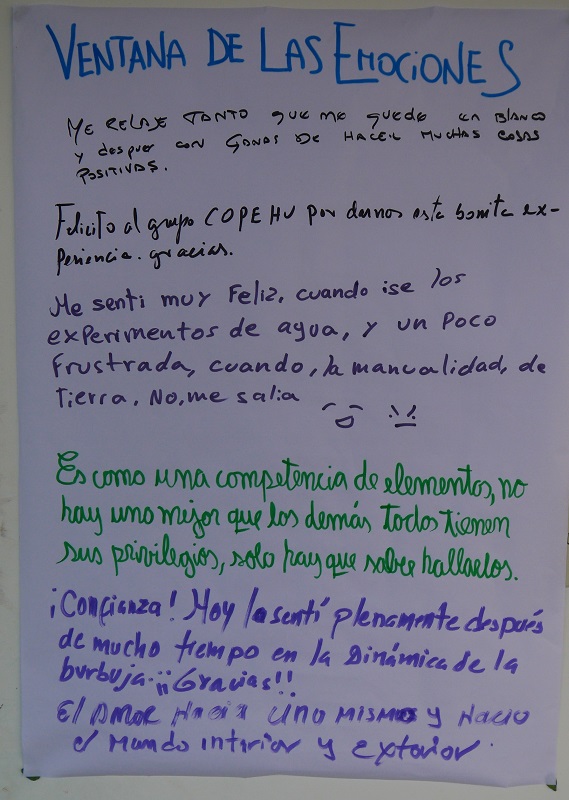 VENTANA DE LAS EMOCIONES
ME RELAJE TANTO QUE ME quede en BLANCO
y despues con GANAS DE HACER MUCHAS COSAS
POSITIVAS.
Felicito al grupo COPEHU por darnos esta bonita ex-
periencia. gracias.
Me senti muy Feliz, cuando ise los
experimentos de agua, y un poco
frustrada, cuando, la manualidad, de
tierra. No, me salia
Es como una competencia de elementos, no
hay uno mejor que los demás todos tienen
sus privilegios, solo hay que saber hallarlos.
¡Confianza! Hoy la sentí plenamente después
de mucho tiempo en la Dinámica de la
burbuja. ¡¡Gracias!!
El AMOR HACIA UNO MISMO y HACIA
el Mundo interior y exterior.